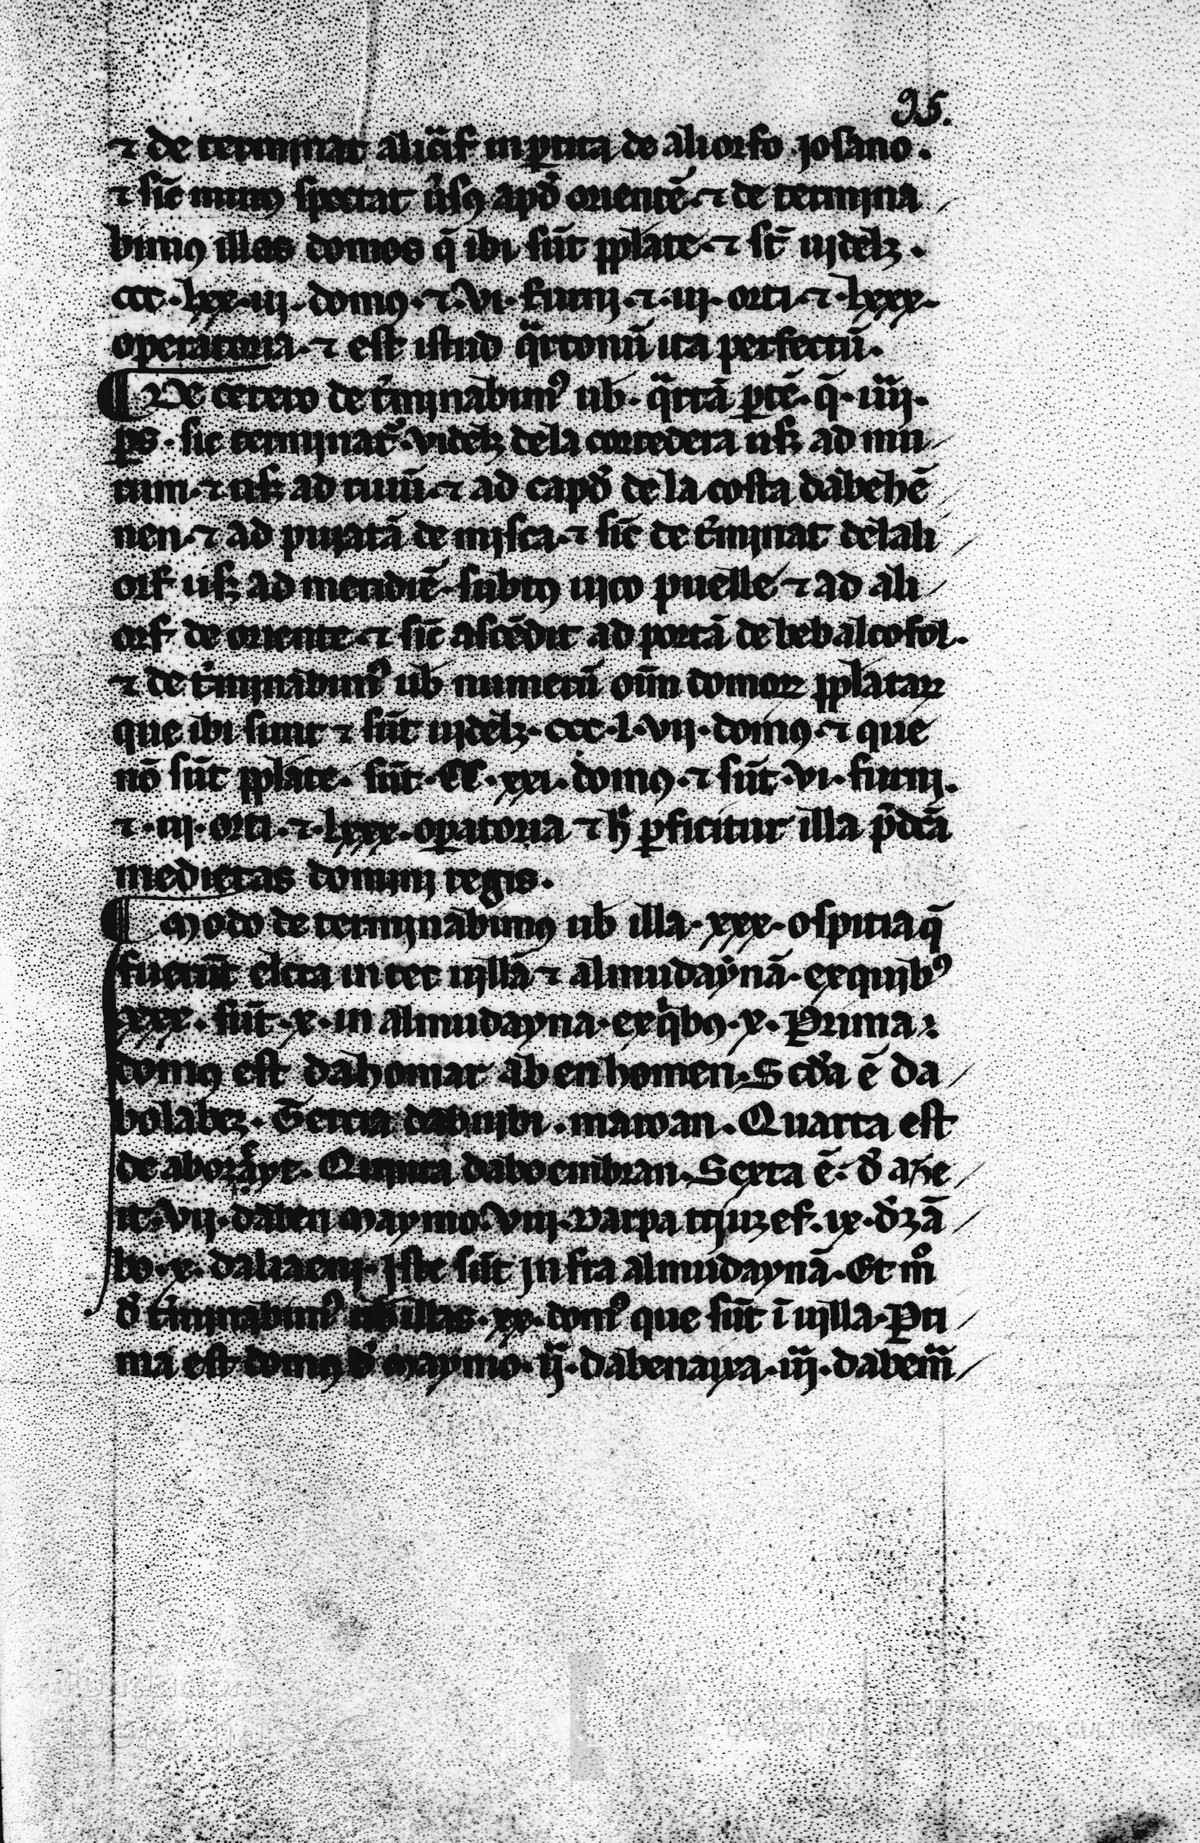 95.
⁊ de terminat alicẜ in ꝑtita de aliorfo josano.
⁊ sic̄ murꝰ spectat ūsꝰ apd̄ orientē. ⁊ de termina
bimꝰ illas domos q̄ ibi sūt pplate. ⁊ st̄ uidelꝫ.
ccc. lxx. iii. domꝰ. ⁊. vi. furni. ⁊. iii. orti. ⁊. lxxx.
operatoria. ⁊ est istud q̄rtonū ita perfectū.
¶ De cetero de t̄minabimꝰ ub. q̄rtā ꝑtē. q̄. iiii.
ps. sic terminat̄. videlꝫ dela corredera usꝫ ad mu
rum. ⁊ usꝫ ad riuū. ⁊ ad capd̄ de la costa dabehē
nen. ⁊ ad puiatā de misca. ⁊ sic̄ de t̄minat delali
orf usꝫ ad meridiē. subtꝰ uico puelle ⁊ ad ali
orf de oriente. ⁊ sic̄ ascēdit ad portā de bebalcofol.
⁊ de t̄minabimꝰ ub numerū oīm domoꝝ pplataꝝ
que ibi sunt ⁊ sūt uidelꝫ. ccc. l. vii. domꝰ. ⁊ que
nō sūt pplate. sūt. CC. xxi. domꝰ. ⁊ sūt. vi. furni.
⁊. iii. orti. ⁊. lxxx. oꝑatoria ⁊ h̄ ꝑficitur illa p̄dcā
medietas domini regis.
¶ Modo de terminabimꝰ ub illa. xxx. ospitia q̄
fuerūt elcta inter uillā ⁊ almudaynā. ex quibꝰ
xxx. sūt. x. in almudayna. ex q̄bꝰ. x. Prima
domꝰ est dahomar abenhomen. Scda ē da
bolabez. Tercia dabuibi. maroan. Quarta est
de aboraye. Quinta daboembran. Sexta ē. d̄ aze
it. vii. daben maymo. viii. varpa iuzef. ix. d̄zā
bo. x. daliaeni. Iste sūt infra almudaynā. Et m̊
d̄ t̄minabimꝰ ub illas. xx. domꝰ que sūt ī uilla. Pri
ma est domꝰ d̄ maymo. ii. dabenaya. iii. dabem̄